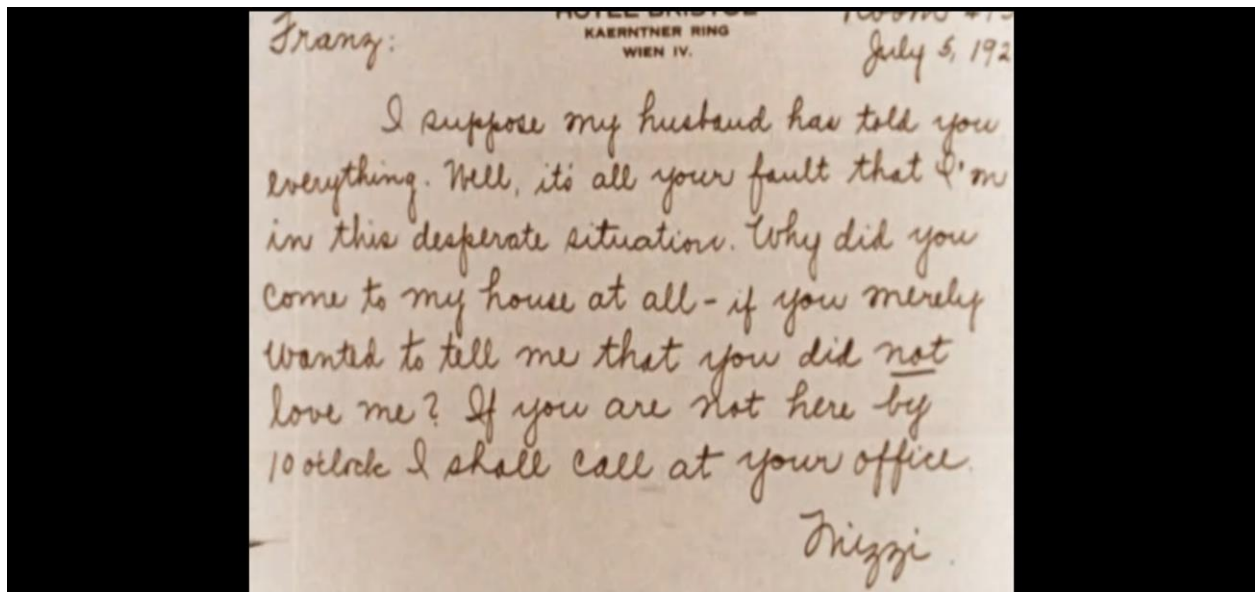 Franz:
HOTEL BRISTOL
KAERNTNER RING
WIEN IV.
Room
July 5, 192
I suppose my husband has told you
everything. Well, it's all your fault that I'm
in this desperate situation. Why did you
come to my house at all - if you merely
wanted to tell me that you did not
love me? If you are not here by
10 o'clock I shall call at your office.
Mizzi